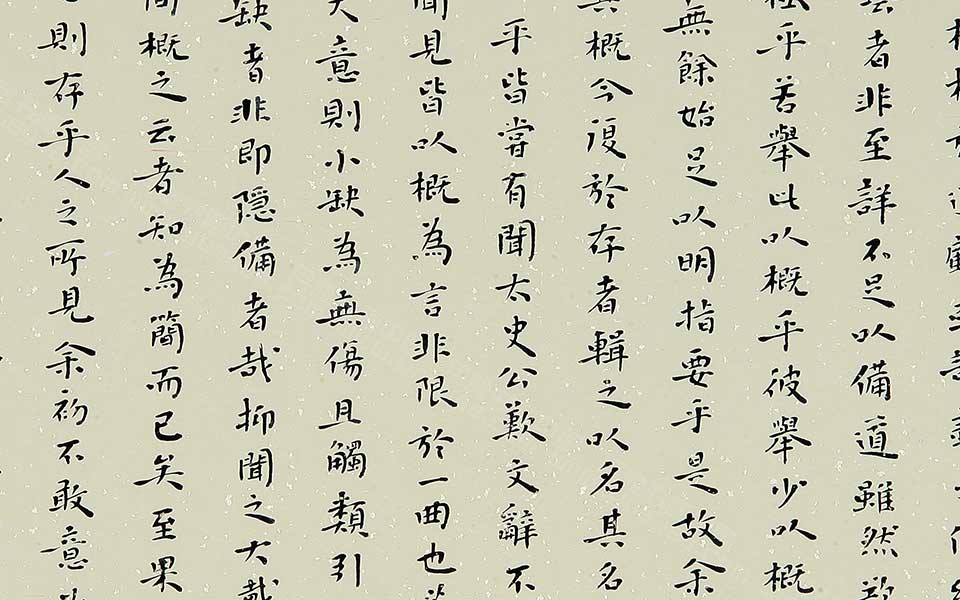 者非至詳不足以備道雖然
乎若舉此以概乎彼舉少以概
無餘始足以明指要乎是故余
其概今復於存者輯之以名其名
乎皆嘗有聞太史公歎文辭不
聞見皆以概為言非限於一曲也
大意則小缺為無傷且觸類引
缺者非即隱備者哉抑聞之大哉
簡概之云者知為簡而已矣至果
則存乎人之所見余初不敢意